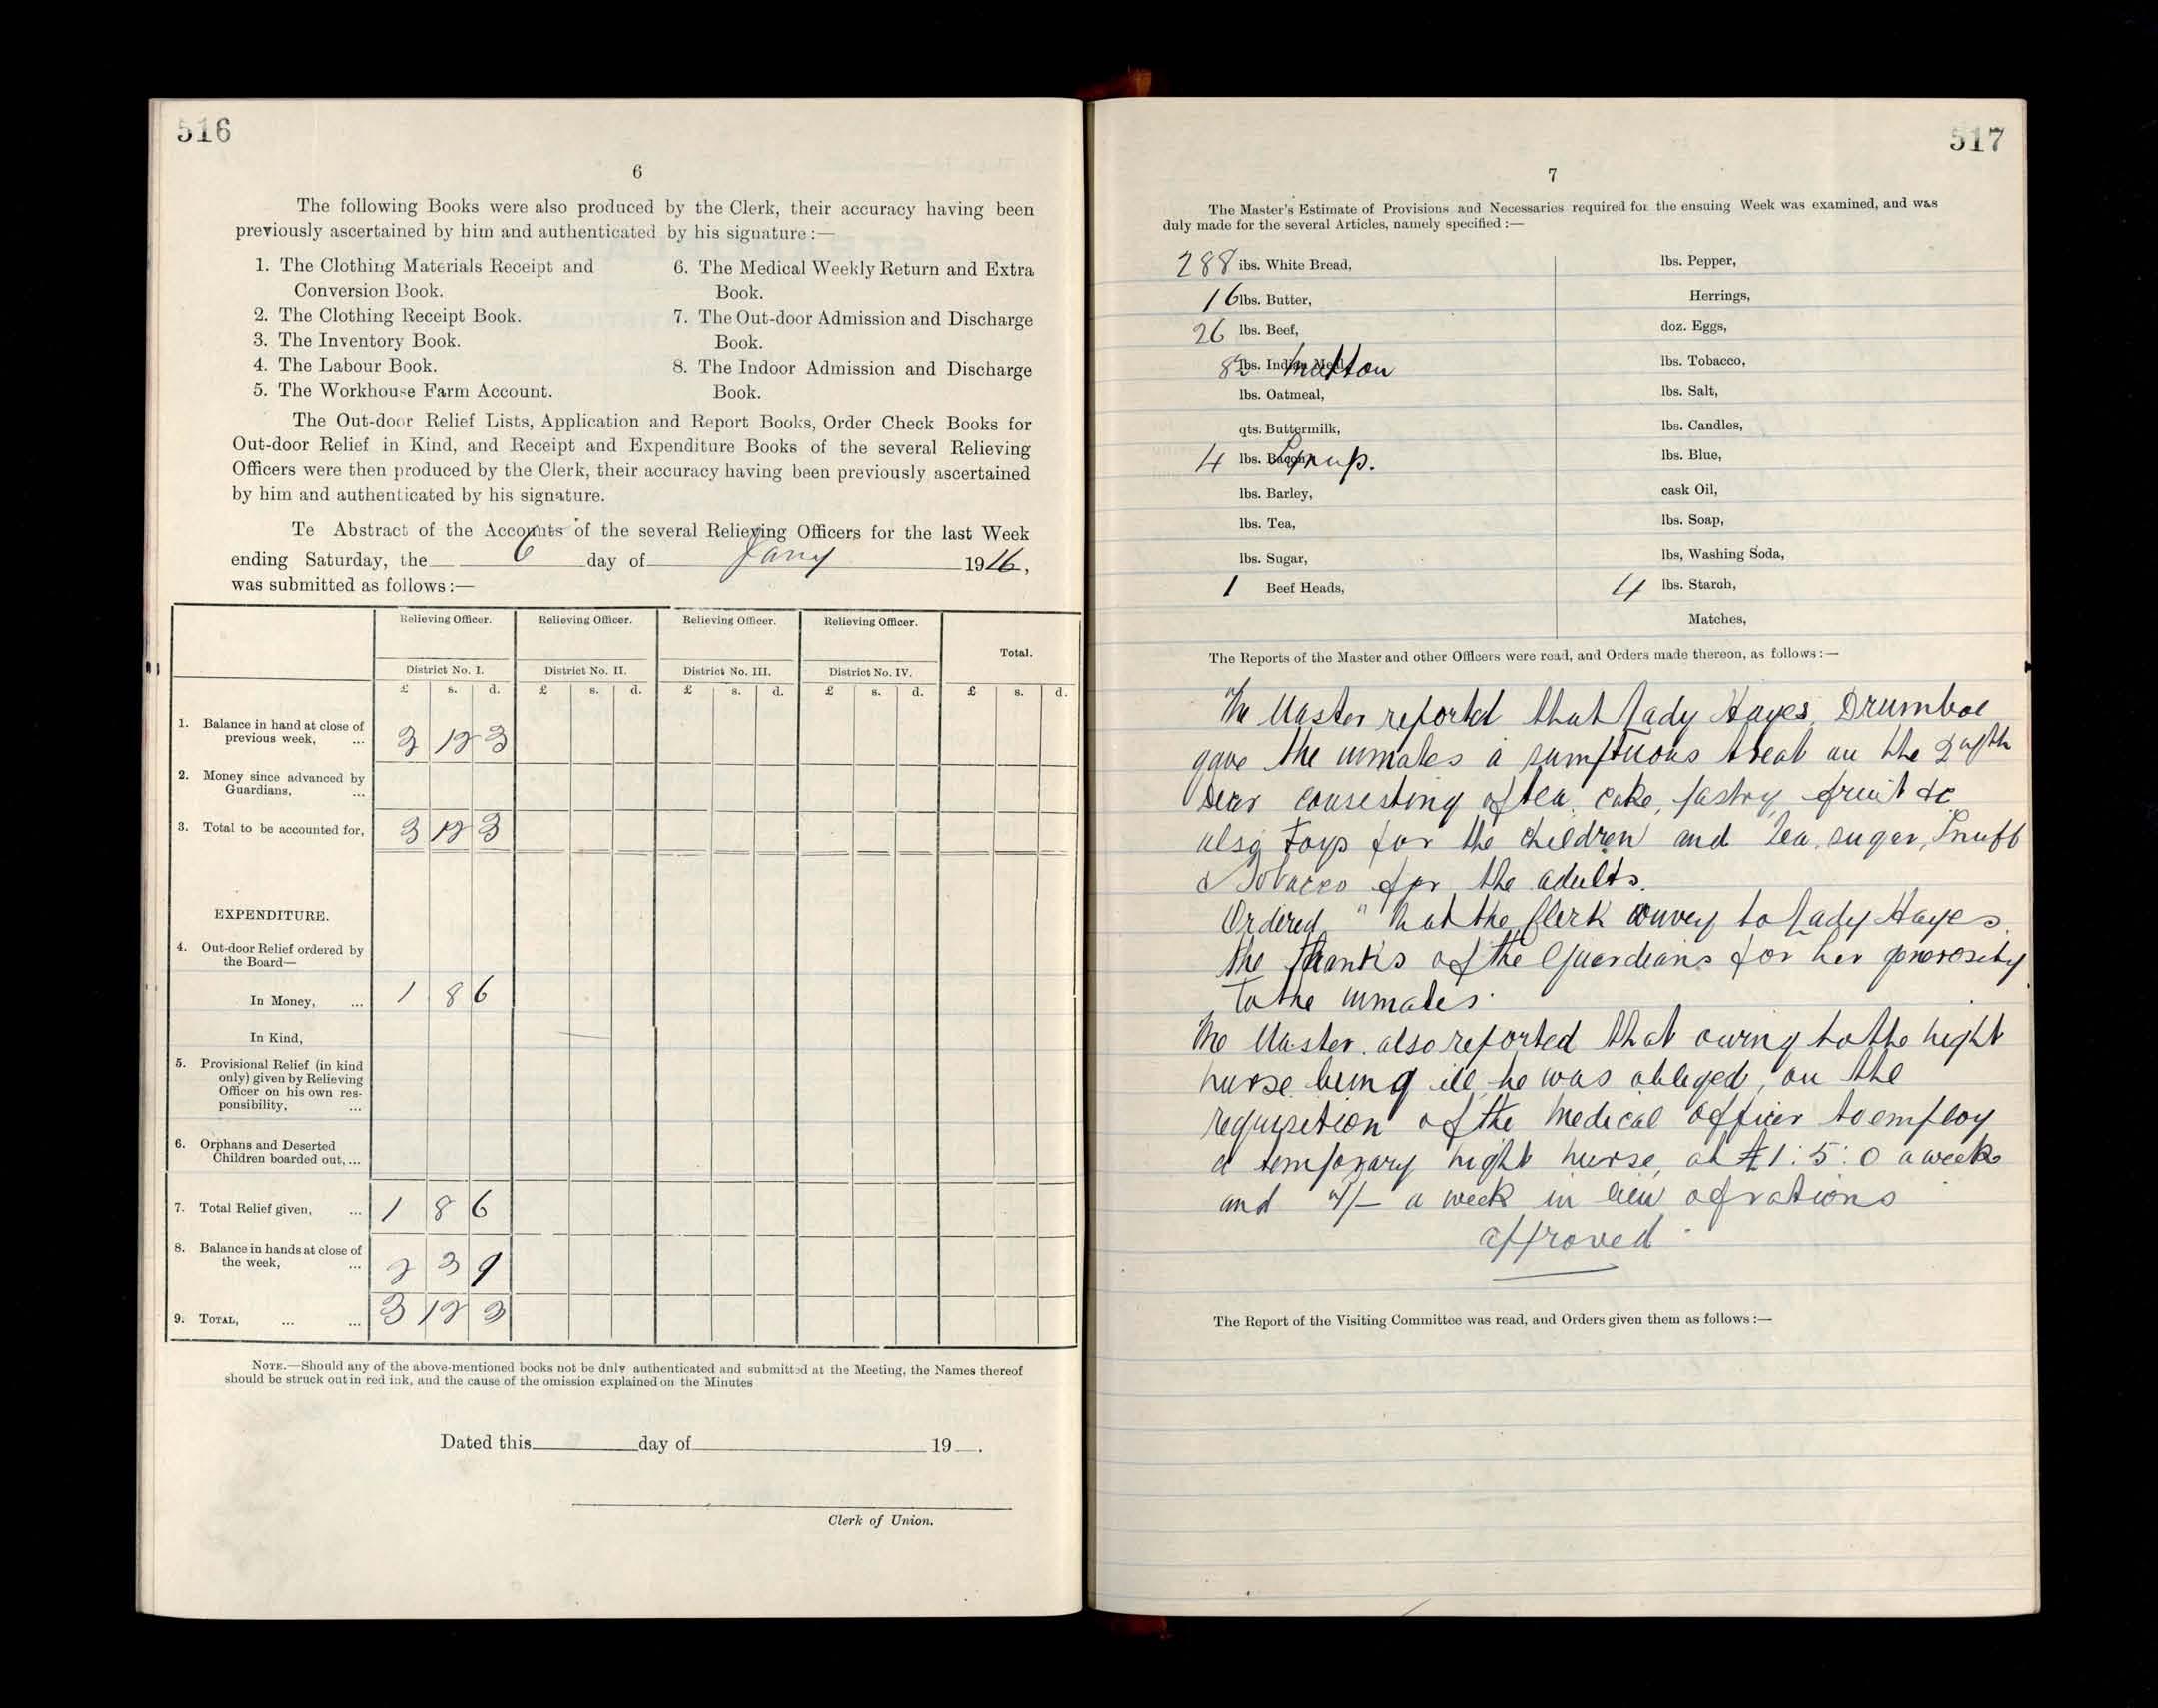 516
6
The following Books were also produced by the Clerk, their accuracy having been
previously ascertained by him and authenticated by his signature :—
1. The Clothing Materials Receipt and
Conversion Book.
2. The Clothing Receipt Book.
3. The Inventory Book.
4. The Labour Book.
5. The Workhouse Farm Account.
6. The Medical Weekly Return and Extra
Book.
7. The Out-door Admission and Discharge
Book.
8. The Indoor Admission and Discharge
Book.
The Out-door Relief Lists, Application and Report Books, Order Check Books for
Out-door Relief in Kind, and Receipt and Expenditure Books of the several Relieving
Officers were then produced by the Clerk, their accuracy having been previously ascertained
by him and authenticated by his signature.
Te Abstract of the Accounts of the several Relieving Officers for the last Week
ending Saturday, the 6 day of Jany 1916,
was submitted as follows :—
Relieving Officer. Relieving Officer. Relieving Officer. Relieving Officer.
Total.
District No. I. District No. II. District No. III. District No. IV.
£ s. d. £ s. d. £ s. d. £ s. d. £ s. d.
1. Balance in hand at close of
previous week, ... 3 12 3
2. Money since advanced by
Guardians, ...
3. Total to be accounted for, 3 12 3
EXPENDITURE.
4. Out-door Relief ordered by
the Board—
In Money, ... 1 8 6
In Kind,
5. Provisional Relief (in kind
only) given by Relieving
Officer on his own res-
ponsibility, ...
6. Orphans and Deserted
Children boarded out, ...
7. Total Relief given, ... 1 8 6
8. Balance in hands at close of
the week, ... 2 3 9
9. TOTAL, ... ... 3 12 3
NOTE.—Should any of the above-mentioned books not be duly authenticated and submitted at the Meeting, the Names thereof
should be struck out in red ink, and the cause of the omission explained on the Minutes
Dated this day of 19 .
Clerk of Union.
517
7
The Master's Estimate of Provisions and Necessaries required for the ensuing Week was examined, and was
duly made for the several Articles, namely specified :—
288 lbs. White Bread,
16 lbs. Butter,
26 lbs. Beef,
82 lbs. Indian Meal, Mutton
lbs. Oatmeal,
qts. Buttermilk,
4 lbs. Bacon, Syrup.
lbs. Barley,
lbs. Tea,
lbs. Sugar,
1 Beef Heads,
lbs. Pepper,
Herrings,
doz. Eggs,
lbs. Tobacco,
lbs. Salt,
lbs. Candles,
lbs. Blue,
cask Oil,
lbs. Soap,
lbs, Washing Soda,
4 lbs. Starch,
Matches,
The Reports of the Master and other Officers were read, and Orders made thereon, as follows :—
The Master reported that Lady Hayes, Drumboe
gave the inmates a sumptuous treat on the
consisting of tea, cake, pastry, fruit &c
also Toys for the children and Tea, sugar, Snuff
& Tobacco for the adults.
Ordered "That the Clerk convey to Lady Hayes
the thanks of the Guardians for her generosity
to the inmates.
The Master also reported that owing to the night
nurse being ill he was obliged, on the
requisition of the Medical Officer to employ
a temporary night nurse, at £1:5:0 a week
and a week in lieu of rations
approved
The Report of the Visiting Committee was read, and Orders given them as follows :—